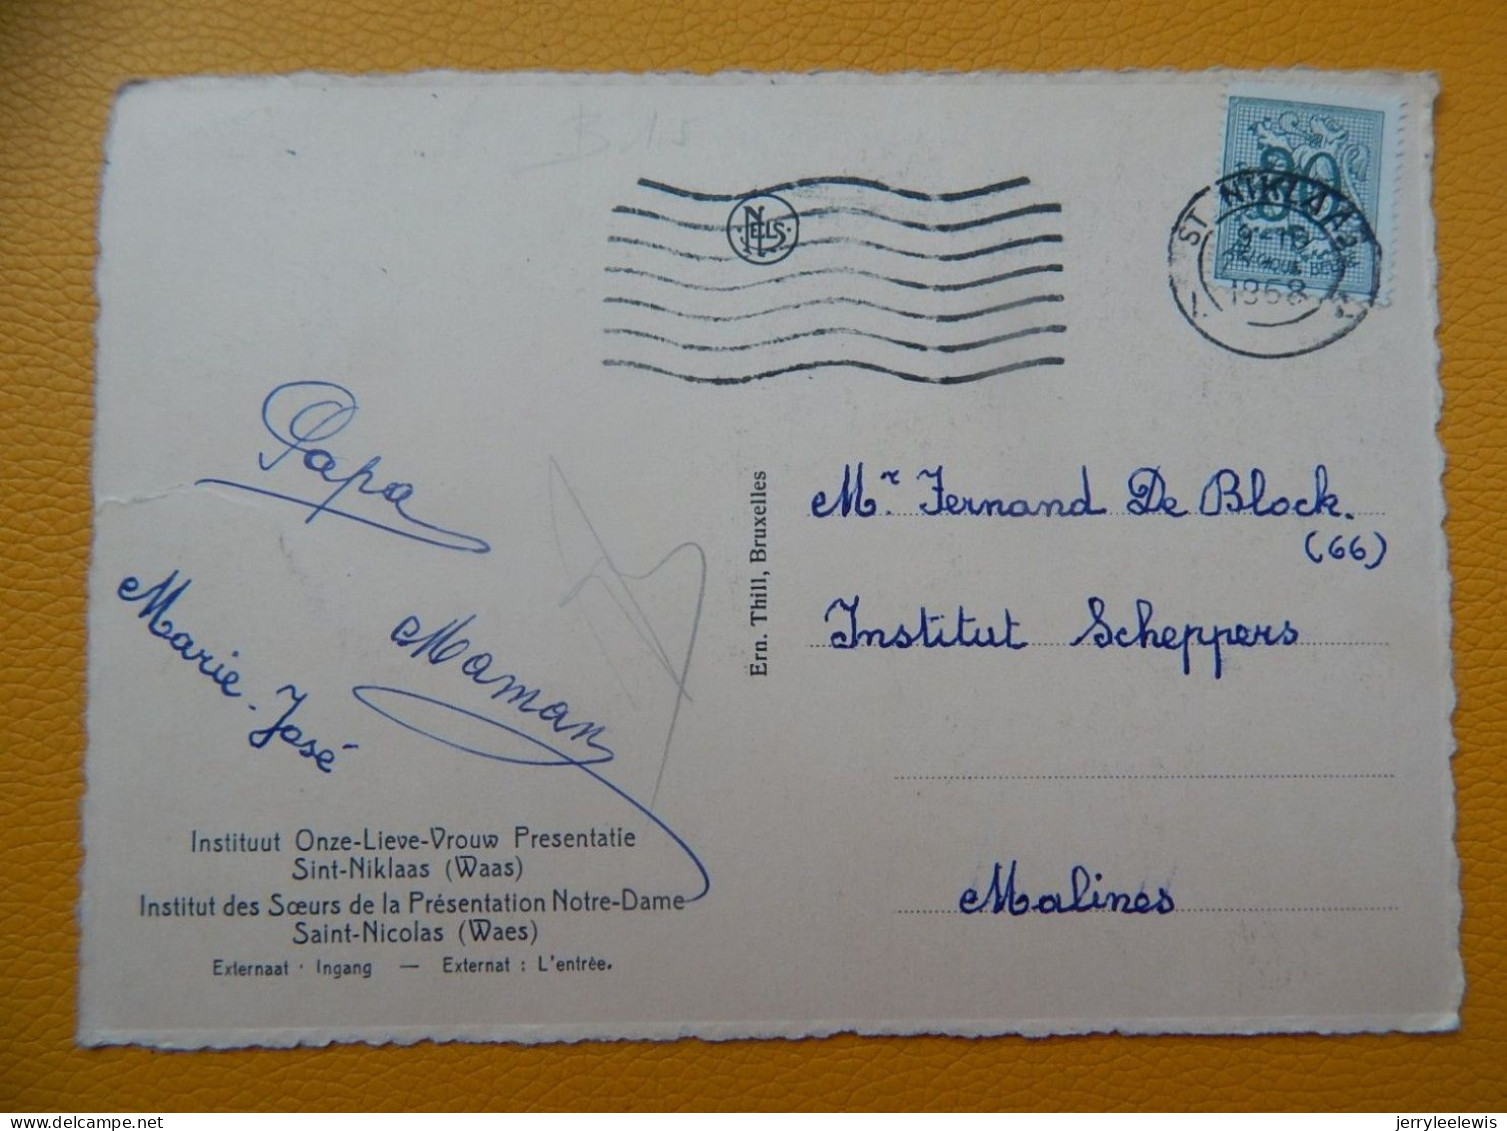 B 15
NELS
ST NIKLAAS
9-10
1968
BELGIQUE BELGIE
Papa
Marie-José
Maman
Ern. Thill, Bruxelles
Mr. Fernand De Block.
(66)
Institut Scheppers
Malines
Instituut Onze-Lieve-Vrouw Presentatie
Sint-Niklaas (Waas)
Institut des Sœurs de la Présentation Notre-Dame
Saint-Nicolas (Waes)
Externaat · Ingang — Externat : L'entrée.
delcampe.net
jerryleelewis